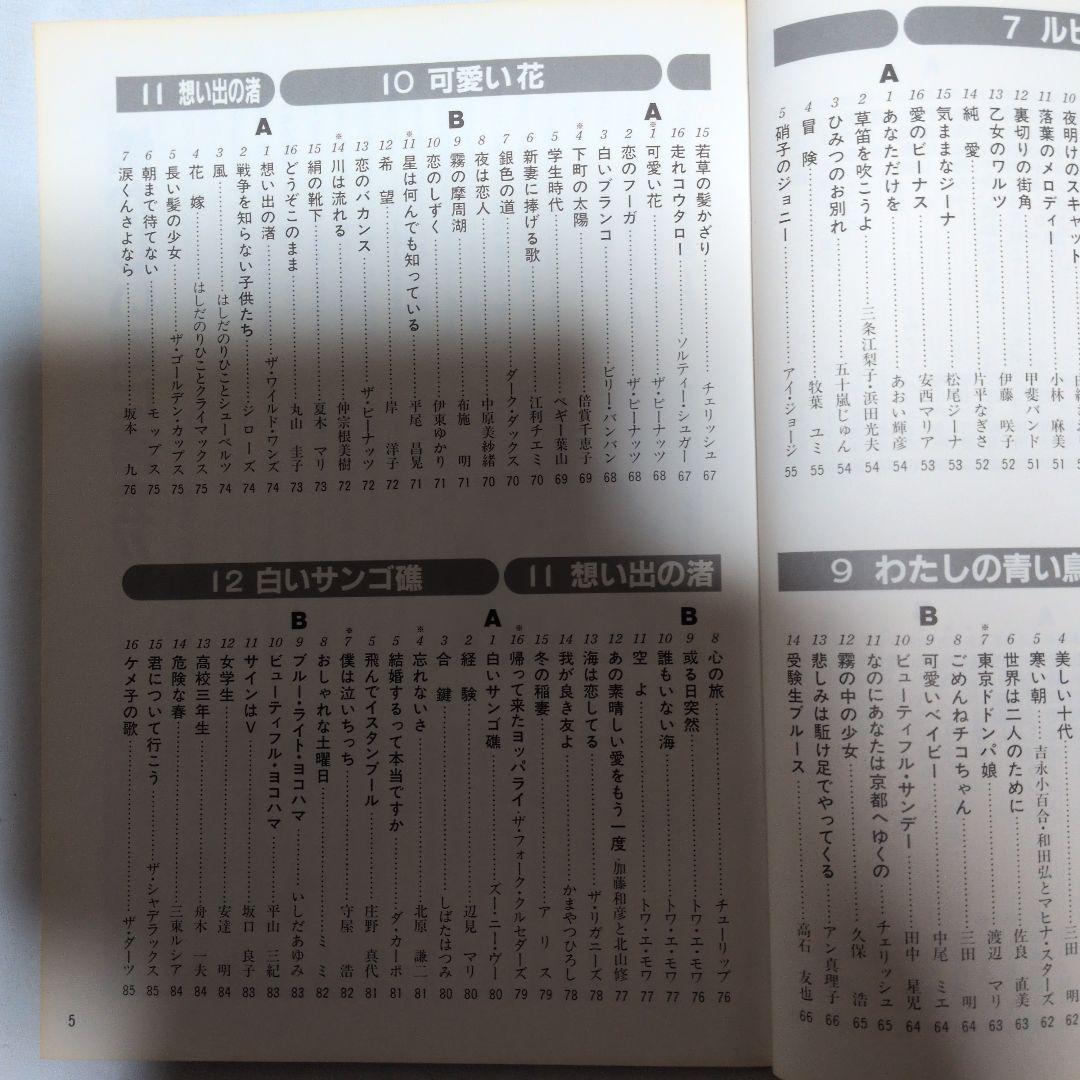 7 ル
10 夜明けのスキャット
11 落葉のメロディー 小林 麻美 51
12 裏切りの街角 甲斐バンド 51
13 乙女のワルツ 伊藤 咲子 52
14 純愛 片平なぎさ 52
15 気ままなジーナ 松尾ジーナ 53
16 愛のビーナス 安西マリア 53
A
1 あなただけを あおい輝彦 54
2 草笛を吹こうよ 三条江梨子・浜田光夫 54
3 ひみつのお別れ 五十嵐じゅん 54
4 冒険 牧葉 ユミ 55
5 硝子のジョニー アイ・ジョージ 55
9 わたしの青い鳥
4 美しい十代 三田 明 62
5 寒い朝 吉永小百合・和田弘とマヒナ・スターズ 62
6 世界は二人のために 佐良 直美 63
※7 東京ドドンパ娘 渡辺 マリ 63
8 ごめんねチコちゃん 三田 明 64
B
9 可愛いベイビー 中尾 ミエ 64
10 ビューティフル・サンデー 田中 星児 64
11 なのにあなたは京都へゆくの チェリッシュ 65
12 霧の中の少女 久保 浩 65
13 悲しみは駈け足でやってくる アン真理子 66
14 受験生ブルース 高石 友也 66
10 可愛い花
15 若草の髪かざり チェリッシュ 67
16 走れコウタロー ソルティー・シュガー 67
A
※1 可愛い花 ザ・ピーナッツ 68
2 恋のフーガ ザ・ピーナッツ 68
3 白いブランコ ビリー・バンバン 68
※4 下町の太陽 倍賞千恵子 69
5 学生時代 ペギー葉山 69
6 新妻に捧げる歌 江利チエミ 70
7 銀色の道 ダーク・ダックス 70
8 夜は恋人 中原美紗緒 70
B
9 霧の摩周湖 布施 明 71
10 恋のしずく 伊東ゆかり 71
※11 星は何んでも知っている 平尾 昌晃 71
12 希望 岸 洋子 72
13 恋のバカンス ザ・ピーナッツ 72
※14 川は流れる 仲宗根美樹 72
15 絹の靴下 夏木 マリ 73
16 どうぞこのまま 丸山 圭子 73
11 想い出の渚
A
1 想い出の渚 ザ・ワイルド・ワンズ 74
2 戦争を知らない子供たち ジローズ 74
3 風 はしだのりひことシューベルツ 74
4 花嫁 はしだのりひことクライマックス 75
5 長い髪の少女 ザ・ゴールデン・カップス 75
6 朝まで待てない モップス 75
7 涙くんさよなら 坂本 九 76
11 想い出の渚
8 心の旅 チューリップ 76
B
9 或る日突然 トワ・エ・モワ 76
10 誰もいない海 トワ・エ・モワ 77
11 空よ トワ・エ・モワ 77
12 あの素晴しい愛をもう一度 加藤和彦と北山修 77
13 海は恋してる ザ・リガニーズ 78
14 我が良き友よ かまやつひろし 78
15 冬の稲妻 アリス 79
※16 帰って来たヨッパライ ザ・フォーク・クルセダーズ 79
12 白いサンゴ礁
A
1 白いサンゴ礁 ズー・ニー・ヴー 80
2 経験 辺見 マリ 80
3 合鍵 しばたはつみ 80
※4 忘れないさ 北原 謙二 81
5 結婚するって本当ですか ダ・カーポ 81
5 飛んでイスタンブール 庄野 真代 81
※7 僕は泣いちっち 守屋 浩 82
8 おしゃれな土曜日 ミミ 82
B
9 ブルー・ライト・ヨコハマ いしだあゆみ 83
10 ビューティフル・ヨコハマ 平山 三紀 83
11 サインはV 坂口 良子 83
12 女学生 安達 明 84
13 高校三年生 舟木 一夫 84
14 危険な春 三東ルシア 84
15 君について行こう ザ・シャデラックス 85
16 ケメ子の歌 ザ・ダーツ 85
5